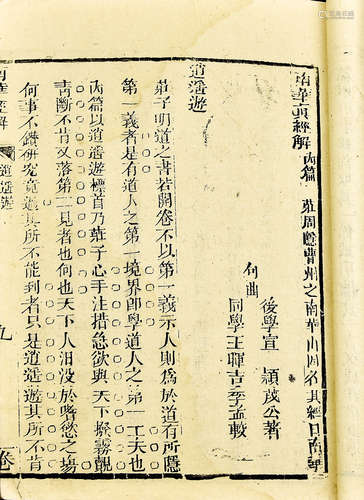 南華眞經解 內篇 莊周隱曹州之南華山因名其經曰南華
句曲
後學宣 頴茂公著
同學王暉吉季孟較
逍遙遊
莊子明道之書若開卷不以第一義示人則爲於道有所隱
第一義者是有道人之第一境界卽學道人之第一工夫也
內篇以道遙遊標首乃莊子心手注措急欲與天下撥霧覩
靑斷不肯又落第二見者也何也天下人汨沒於嗜慾之場
何事不鑽研究竟道其所不能到者只是逍遙遊其所不肯
南華經解
逍遙遊
九
卷